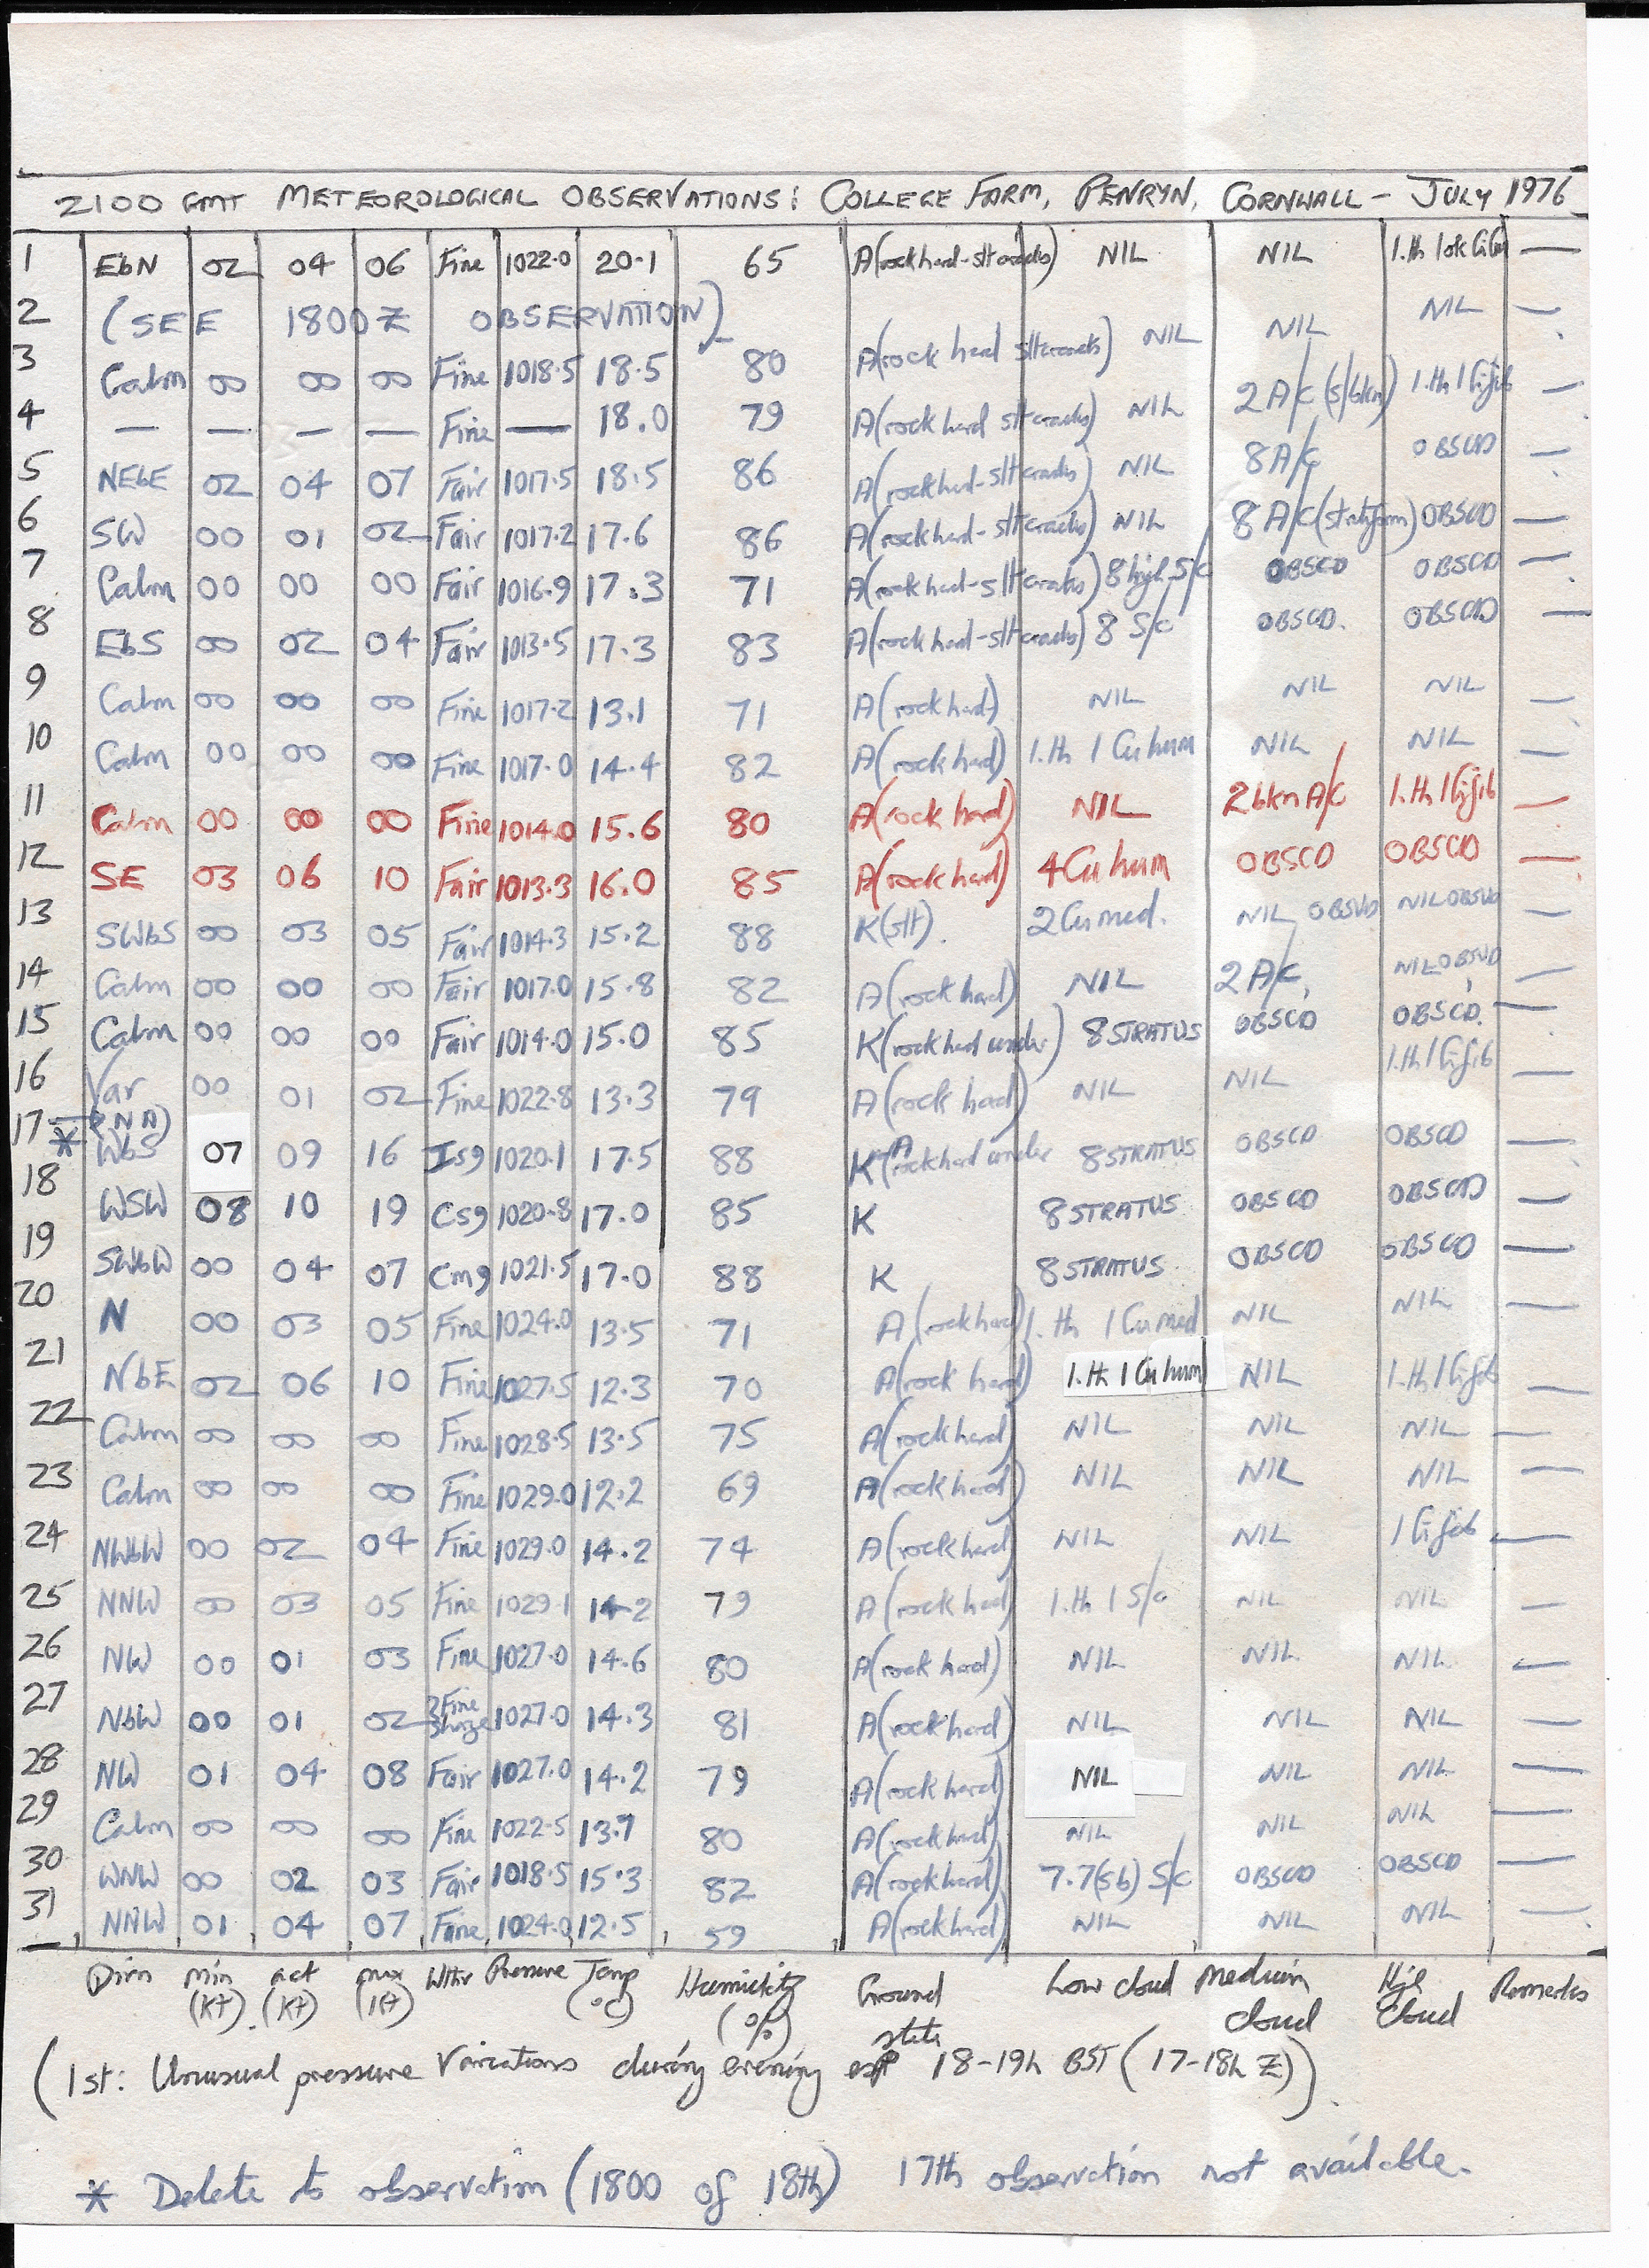 2100 GMT METEOROLOGICAL OBSERVATIONS: COLLEGE FARM, PENRYN, CORNWALL - JULY 1976
1 EbN 02 04 06 Fine 1022.0 20.1 65 A(rock hard-slt cracks) NIL NIL 1.th 1 —
2 (SEE 1800Z OBSERVATION) NIL —
3 Calm 00 00 00 Fine 1018.5 18.5 80 A(rock hard slt cracks) NIL NIL 1.th 1 Cifib —
4 — — — — Fine — 18.0 79 A(rock hard slt cracks) NIL 2 A/c (s/bkn) —
5 NEbE 02 04 07 Fair 1017.5 18.5 86 A(rock hard-slt cracks) NIL 8 A/c OBSCD —
6 SW 00 01 02 Fair 1017.2 17.6 86 A(rock hard-slt cracks) NIL 8 A/c (stratiform) OBSCD —
7 Calm 00 00 00 Fair 1016.9 17.3 71 A(rock hard-slt cracks) 8 high S/c OBSCD OBSCD —
8 EbS 00 02 04 Fair 1013.5 17.3 83 A(rock hard-slt cracks) 8 S/c OBSCD. OBSCD —
9 Calm 00 00 00 Fine 1017.2 13.1 71 A(rock hard) NIL NIL NIL —
10 Calm 00 00 00 Fine 1017.0 14.4 82 A(rock hard) 1.th 1 Cu hum NIL NIL —
11 Calm 00 00 00 Fine 1014.0 15.6 80 A(rock hard) NIL 2 bkn A/c 1.th 1 Cifib —
12 SE 03 06 10 Fair 1013.3 16.0 85 A(rock hard) 4 Cu hum OBSCD OBSCD —
13 SWbS 00 03 05 Fair 1014.3 15.2 88 K(slt). 2 Cu med. NIL OBSVD NIL OBSVD —
14 Calm 00 00 00 Fair 1017.0 15.8 82 A(rock hard) NIL 2 A/c, NIL OBSVD —
15 Calm 00 00 00 Fair 1014.0 15.0 85 K(rock hard under) 8 STRATUS OBSCD OBSCD. —
16 Var 00 01 02 Fine 1022.8 13.3 79 A(rock hard) NIL NIL 1.th 1 Cifib —
17 * WbS 07 09 16 Isg 1020.1 17.5 88 K(rock hard under 8 STRATUS OBSCD OBSCD —
18 WSW 08 10 19 Csg 1020.8 17.0 85 K 8 STRATUS OBSCD OBSCD —
19 SWbW 00 04 07 Cmg 1021.5 17.0 88 K 8 STRATUS OBSCD OBSCD —
20 N 00 03 05 Fine 1024.0 13.5 71 A(rock hard) 1.th 1 Cu med NIL NIL —
21 NbE 02 06 10 Fine 1027.5 12.3 70 A(rock hard) 1.th 1 Cu hum NIL 1.th 1 Cifib —
22 Calm 00 00 00 Fine 1028.5 13.5 75 A(rock hard) NIL NIL NIL —
23 Calm 00 00 00 Fine 1029.0 12.2 69 A(rock hard) NIL NIL NIL —
24 NWbW 00 02 04 Fine 1029.0 14.2 74 A(rock hard) NIL NIL 1 Cifib —
25 NNW 00 03 05 Fine 1029.1 14.2 79 A(rock hard) 1.th 1 S/c NIL NIL —
26 NW 00 01 03 Fine 1027.0 14.6 80 A(rock hard) NIL NIL NIL —
27 NbW 00 01 02 Fine 1027.0 14.3 81 A(rock hard) NIL NIL NIL —
28 NW 01 04 08 Fair 1027.0 14.2 79 A(rock hard) NIL NIL NIL —
29 Calm 00 00 00 Fine 1022.5 13.9 80 A(rock hard) NIL NIL NIL —
30 WNW 00 02 03 Fair 1018.5 15.3 82 A(rock hard) 7.7(sb) S/c OBSCD OBSCD —
31 NNW 01 04 07 Fine 1024.0 12.5 59 A(rock hard) NIL NIL NIL —
Dirn min (kt) act (kt) max (kt) Wthr Pressure Temp (°C) Humidity (%) Ground state Low cloud medium cloud High cloud Remarks
(1st: Unusual pressure variations during evening esp 18-19h BST (17-18h Z)).
* Delete to observation (1800 of 18th) 17th observation not available.